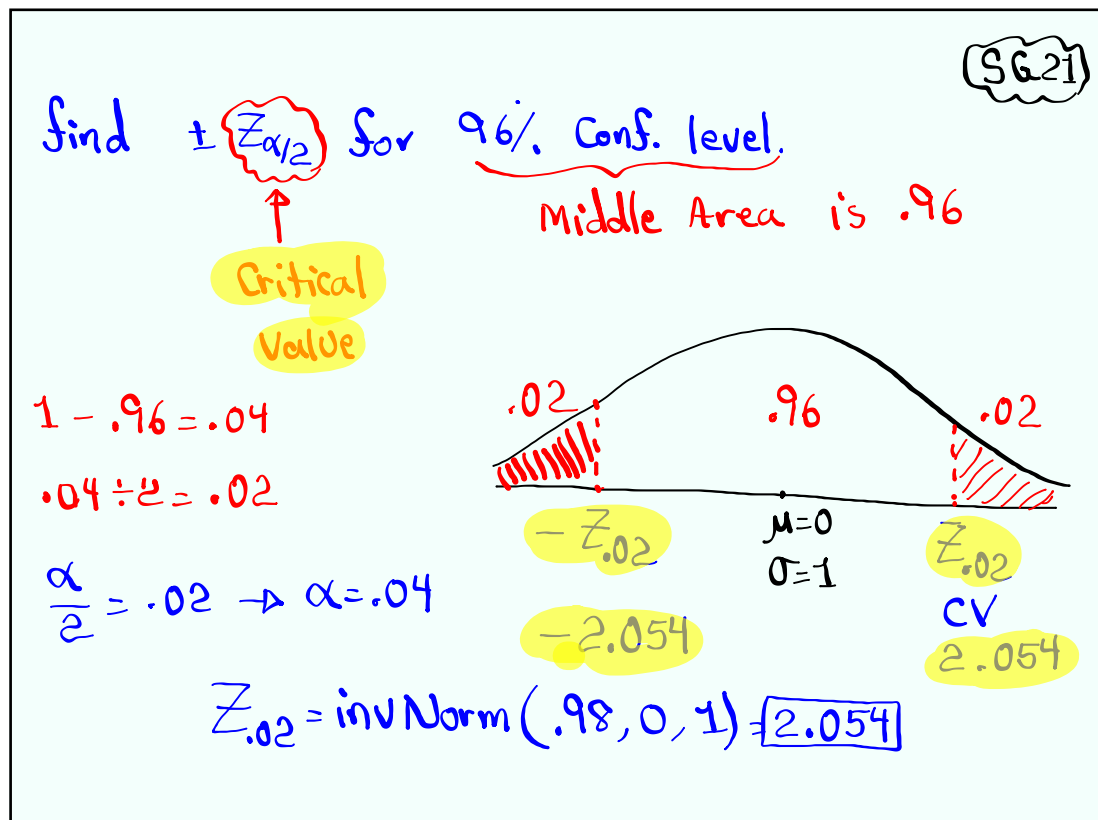 SG21
find ± Zα/2 for 96% Conf. level.
Middle Area is .96
Critical
Value
1 - .96 = .04
.04 ÷ 2 = .02
α/2 = .02 → α = .04
.02 .96 .02
-Z.02 μ=0 Z.02
σ=1 CV
-2.054 2.054
Z.02 = invNorm(.98, 0, 1) = 2.054